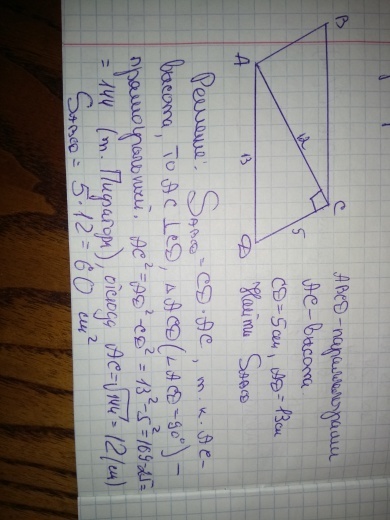 B
A
C
D
12
13
5
ABCD - параллелограмм
AC - высота
CD = 5 см, AD = 13 см
Найти S_ABCD
Решение: S_ABCD = CD · AC, т. к. AC -
высота, то AC ⊥ CD, △ACD (∠ACD = 90°) -
прямоугольный. AC² = AD² - CD² = 13² - 5² = 169 - 25 =
= 144 (т. Пифагора), отсюда AC = √144 = 12 (см)
S_ABCD = 5 · 12 = 60 см²